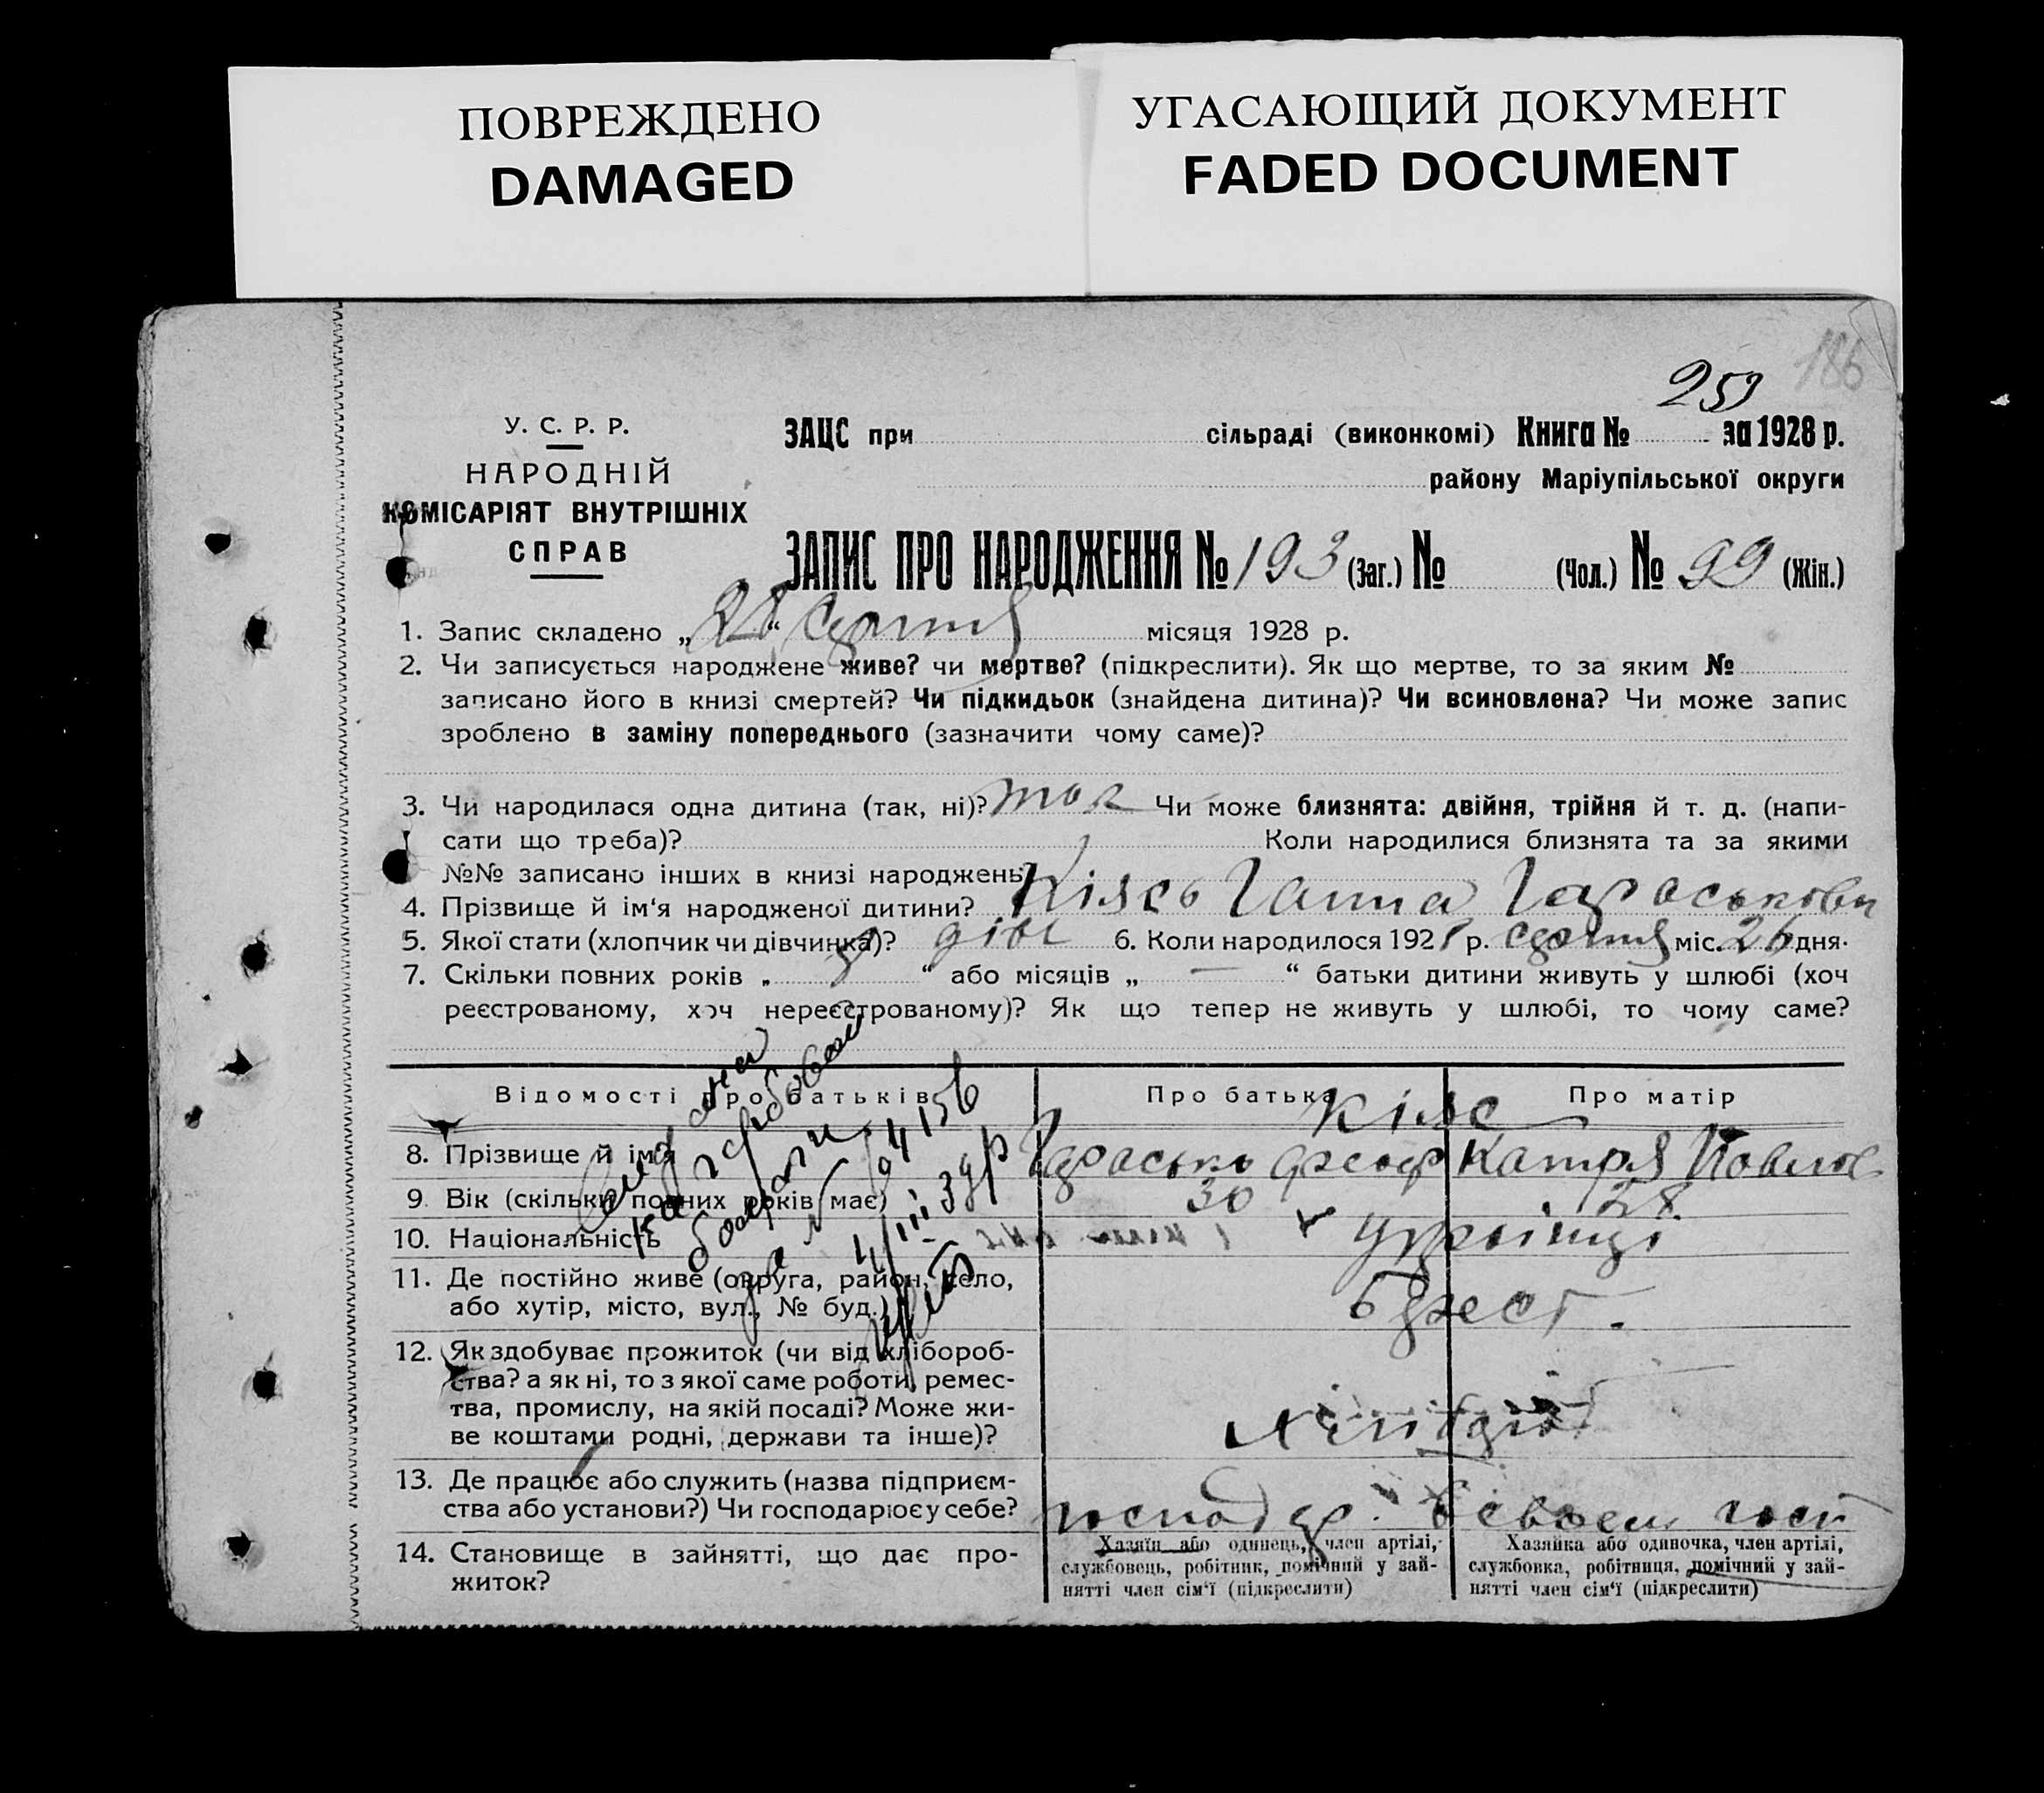 ПОВРЕЖДЕНО
DAMAGED
УГАСАЮЩИЙ ДОКУМЕНТ
FADED DOCUMENT
186
253
У. С. Р. Р.
НАРОДНІЙ
КОМІСАРІЯТ ВНУТРІШНІХ
СПРАВ
ЗАЦС при сільраді (виконкомі) Книга № за 1928 р.
району Маріупільської округи
ЗАПИС ПРО НАРОДЖЕННЯ № 193 (Заг.) № (Чол.) № 99 (Жін.)
1. Запис складено „28“ серпня місяця 1928 р.
2. Чи записується народжене живе? чи мертве? (підкреслити). Як що мертве, то за яким №
записано його в книзі смертей? Чи підкидьок (знайдена дитина)? Чи всиновлена? Чи може запис
зроблено в заміну попереднього (зазначити чому саме)?
3. Чи народилася одна дитина (так, ні)? так Чи може близнята: двійня, трійня й т. д. (напи-
сати що треба)? Коли народилися близнята та за якими
№№ записано інших в книзі народжень
4. Прізвище й ім‘я народженої дитини? Ганна Гараськови
5. Якої стати (хлопчик чи дівчинка)? дівч 6. Коли народилося 1928 р. серпня міс. 26 дня.
7. Скільки повних років „ “ або місяців „ — “ батьки дитини живуть у шлюбі (хоч
реєстрованому, хоч нереєстрованому)? Як що тепер не живуть у шлюбі, то чому саме?
Відомості про батьків Про батька Про матір
8. Прізвище й ім‘я Гарасько Катря Павлов
9. Вік (скільки повних років має) 30 28
10. Національність україн
11. Де постійно живе (округа, район, село,
або хутір, місто, вул., № буд.)
12. Як здобуває прожиток (чи від хлібороб-
ства? а як ні, то з якої саме роботи, ремес-
тва, промислу, на якій посаді? Може жи-
ве коштами родні, держави та інше)?
13. Де працює або служить (назва підприєм-
ства або установи?) Чи господарює у себе? господар. в своєм госп
14. Становище в зайнятті, що дає про-
житок?
Хазяїн або одинець, член артілі,
службовець, робітник, помічний у зай-
нятті член сім‘ї (підкреслити)
Хазяйка або одиночка, член артілі,
службовка, робітниця, помічний у зай-
нятті член сім‘ї (підкреслити)